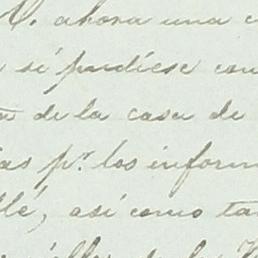 V. ahora una
si pudiese con
de la casa de
las pr. los inform
llé, así como ta